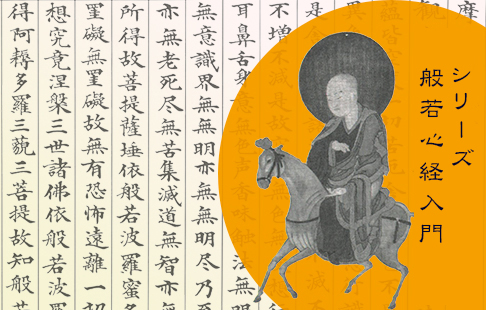 シリーズ
般若心経入門
摩
不増不減是故
耳鼻舌身意無色声香味觸法無眼
無意識界無無明亦無無明尽乃至
亦無老死尽無苦集滅道無智亦無
所得故菩提薩埵依般若波羅蜜多
罣礙無罣礙故無有恐怖遠離一切
想究竟涅槃三世諸佛依般若波羅
得阿耨多羅三藐三菩提故知般若